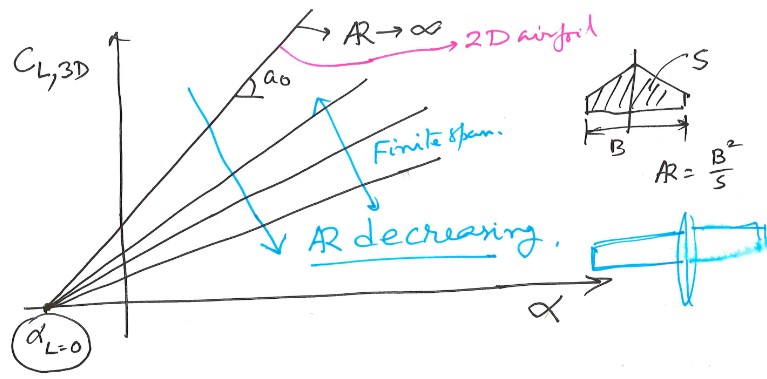 C_{L,3D}
a₀
→ AR → ∞
2D airfoil
Finite span.
AR decreasing.
α_{L=0}
α
S
B
AR = B²/S